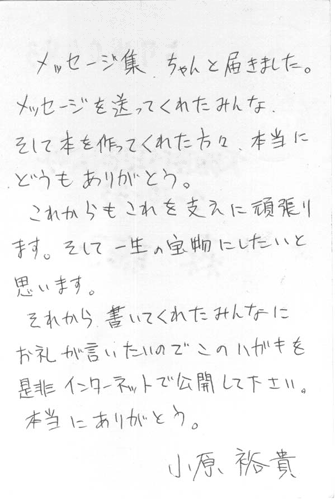 メッセージ集、ちゃんと届きました。
メッセージを送ってくれたみんな、
そして本を作ってくれた方々、本当に
どうもありがとう。
これからもこれを支えに頑張り
ます。そして一生の宝物にしたいと
思います。
それから、書いてくれたみんなに
お礼が言いたいのでこのハガキを
是非インターネットで公開して下さい。
本当にありがとう。
小原裕貴